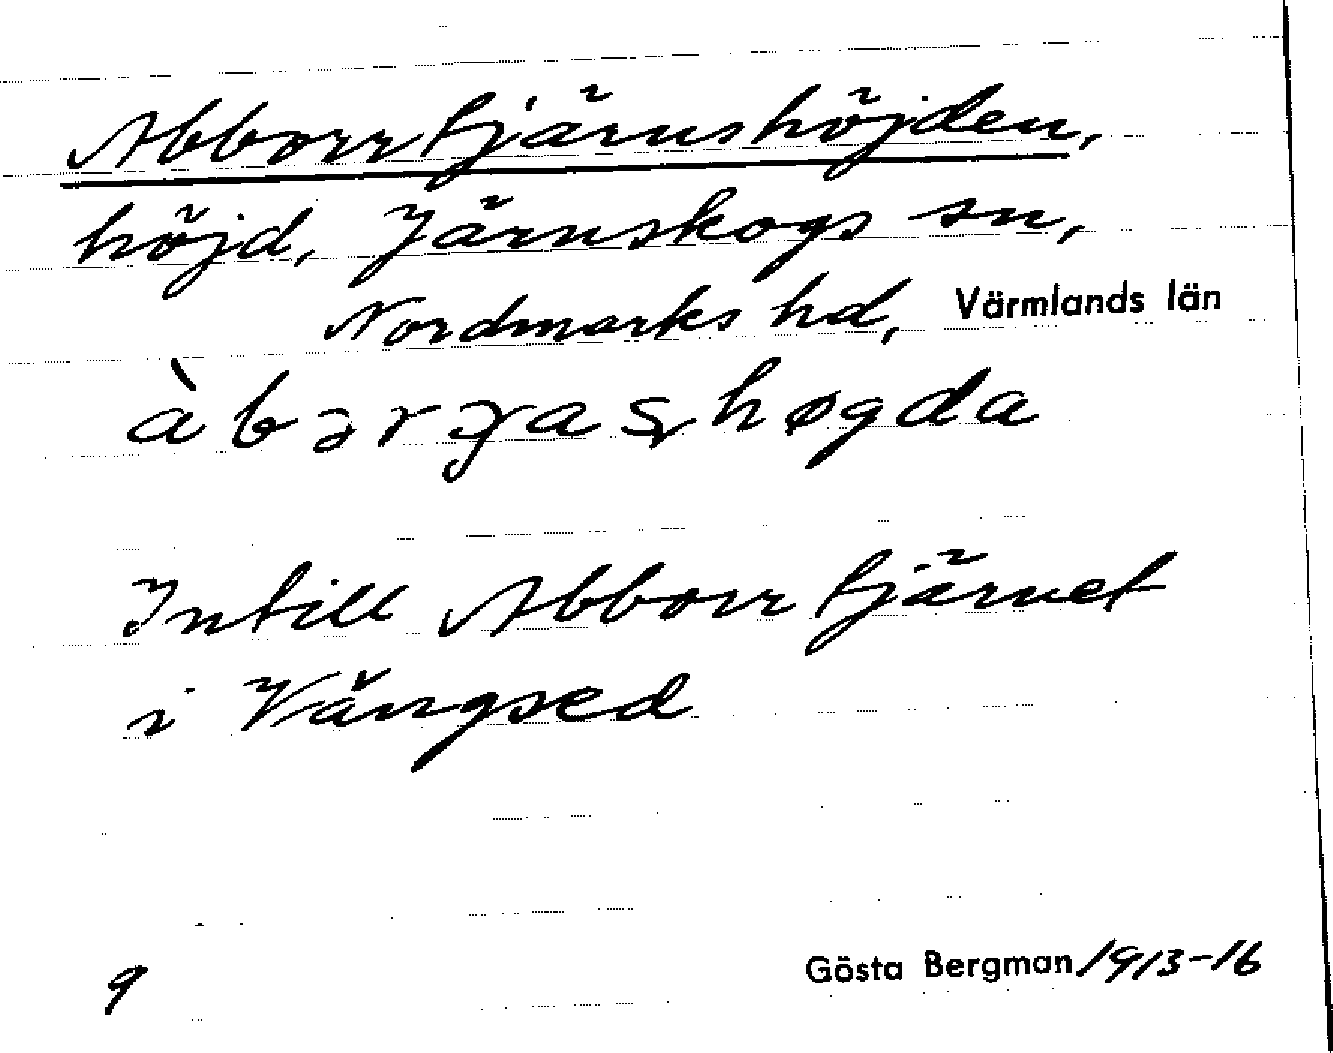 Abborrtjärnshöjden,
höjd, Järnskogs sn,
Nordmarks hd, Värmlands län
Intill Abborrtjärnet
i Vängsed
9
Gösta Bergman 1913-16